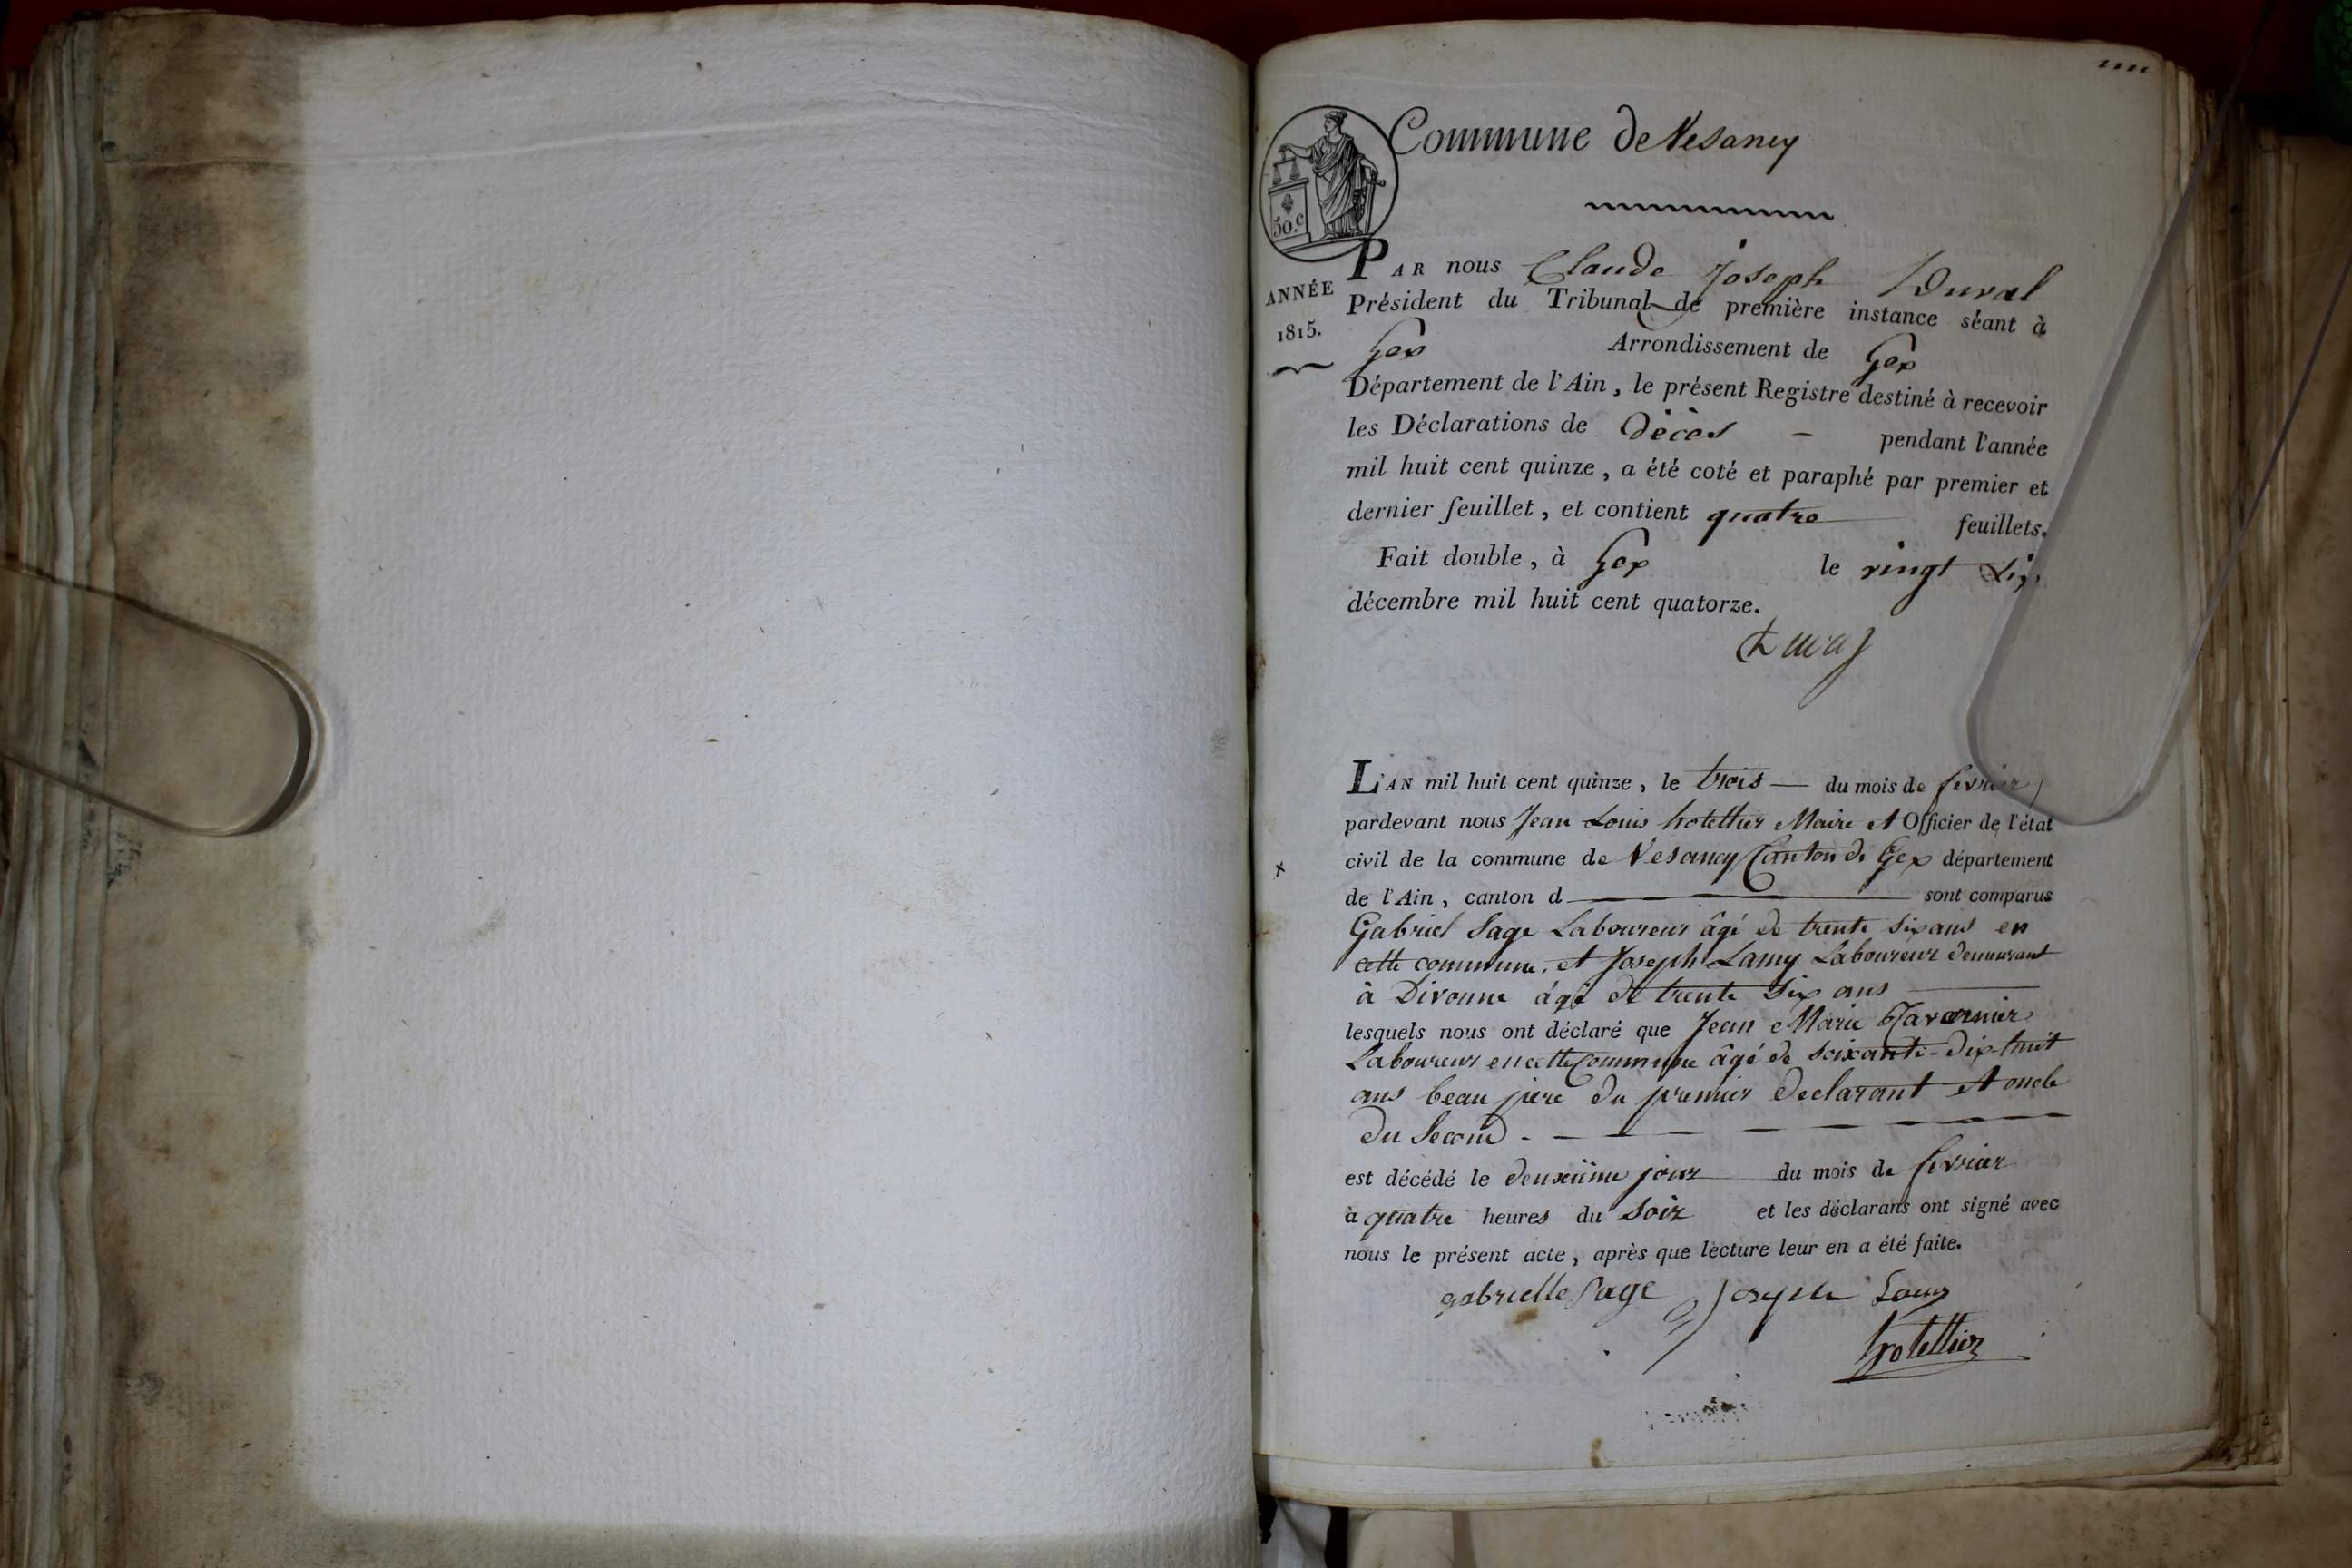 Commune de Vesancy
50.c
ANNÉE
1815.
PAR nous Claude Joseph Duval
Président du Tribunal de première instance séant à
Gex Arrondissement de Gex
Département de l'Ain, le présent Registre destiné à recevoir
les Déclarations de Décès — pendant l'année
mil huit cent quinze, a été coté et paraphé par premier et
dernier feuillet, et contient quatre feuillets.
Fait double, à Gex le vingt six
décembre mil huit cent quatorze.
Duval
L'AN mil huit cent quinze, le trois — du mois de fevrier
pardevant nous Jean Louis hotellier Maire et Officier de l'état
civil de la commune de Vesancy Canton de Gex département
de l'Ain, canton d — sont comparus
Gabriel Sage Laboureur âgé de trente six ans en
cette commune. et Joseph Lamy Laboureur demeurant
à Divonne âgé de trente six ans —
lesquels nous ont déclaré que Jean Marie Tavernier
Laboureur en cette Commune âgé de soixante-dix-huit
ans beau pere du premier declarant et oncle
du Second. —
est décédé le deuxiime jour du mois de fevrier
à quatre heures du Soir et les déclarans ont signé avec
nous le présent acte, après que lecture leur en a été faite.
gabrielle Sage Joseph Lamy
hotellier